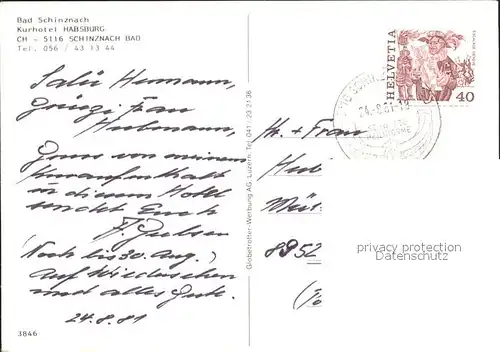 Bad Schinznach
Kurhotel HABSBURG
CH - 5116 SCHINZNACH BAD
Tel. 056 / 43 13 44
HELVETIA
40
Salü Hermann,
Grüezi Frau
Hubmann,
Gruss von meinem
Kuraufenthalt
in diesem Hotel
sendet Euch
(Noch bis 30. Aug.)
Auf Wiedersehen
und alles Gute.
24.8.81
3846
Globetrotter-Werbung AG, Luzern, Tel. 041 - 23 21 36
Hr. + Frau
8952
privacy protection
Datenschutz